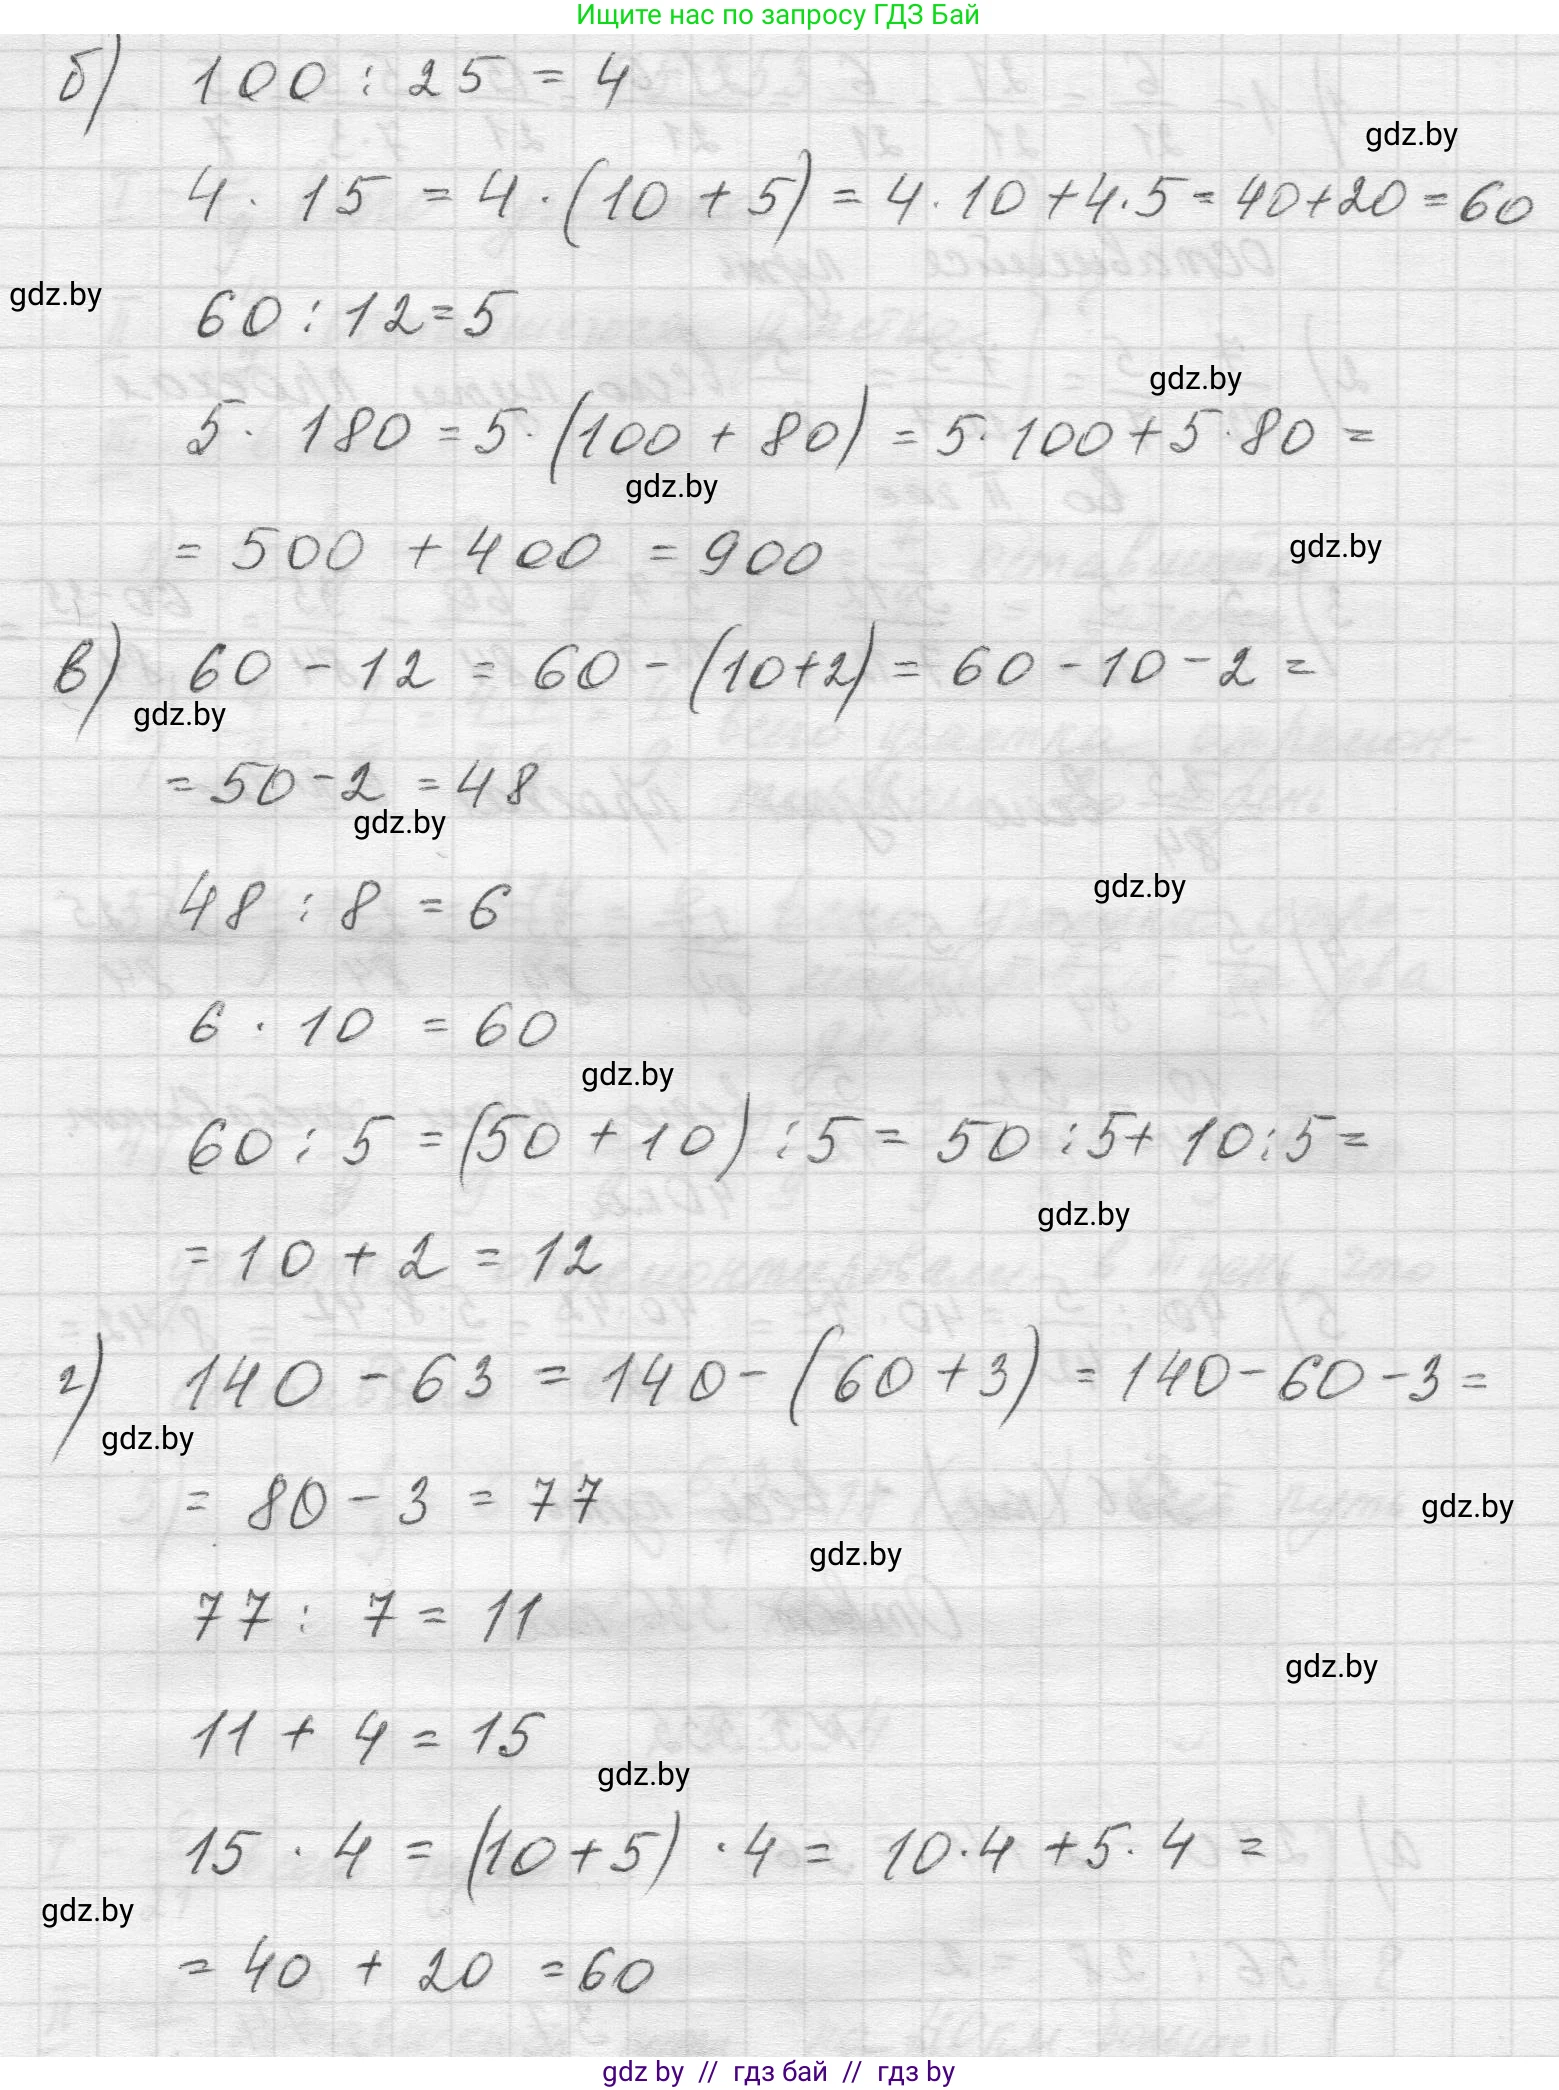 Ищите нас по запросу ГДЗ Бай
б) 100 : 25 = 4
gdz.by
4 · 15 = 4 · (10 + 5) = 4 · 10 + 4 · 5 = 40 + 20 = 60
gdz.by
60 : 12 = 5
gdz.by
5 · 180 = 5 · (100 + 80) = 5 · 100 + 5 · 80 =
gdz.by
= 500 + 400 = 900
gdz.by
в) 60 - 12 = 60 - (10 + 2) = 60 - 10 - 2 =
gdz.by
= 50 - 2 = 48
gdz.by
48 : 8 = 6
gdz.by
6 · 10 = 60
gdz.by
60 : 5 = (50 + 10) : 5 = 50 : 5 + 10 : 5 =
gdz.by
= 10 + 2 = 12
г) 140 - 63 = 140 - (60 + 3) = 140 - 60 - 3 =
gdz.by
= 80 - 3 = 77
gdz.by
gdz.by
77 : 7 = 11
gdz.by
11 + 4 = 15
gdz.by
15 · 4 = (10 + 5) · 4 = 10 · 4 + 5 · 4 =
gdz.by
= 40 + 20 = 60
gdz by // гдз бай // гдз by